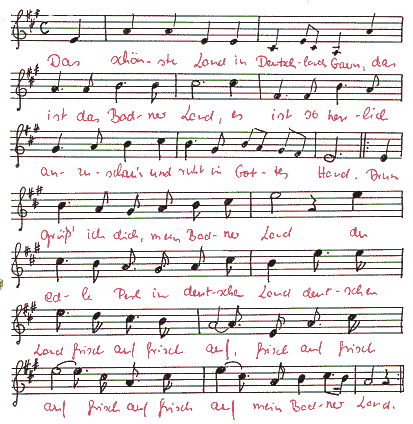 Das schön-ste Land in Deutsch-lands Gaun, das
ist das Bad-ner Land, es ist so herr-lich
an-zu-schaun und ruht in Got-tes Hand. Drum
grüß' ich dich, mein Bad-ner Land du
ed-le Perl in deut-schen Land deut-schen
Land frisch auf frisch auf, frisch auf frisch
auf frisch auf frisch auf mein Bad-ner Land.